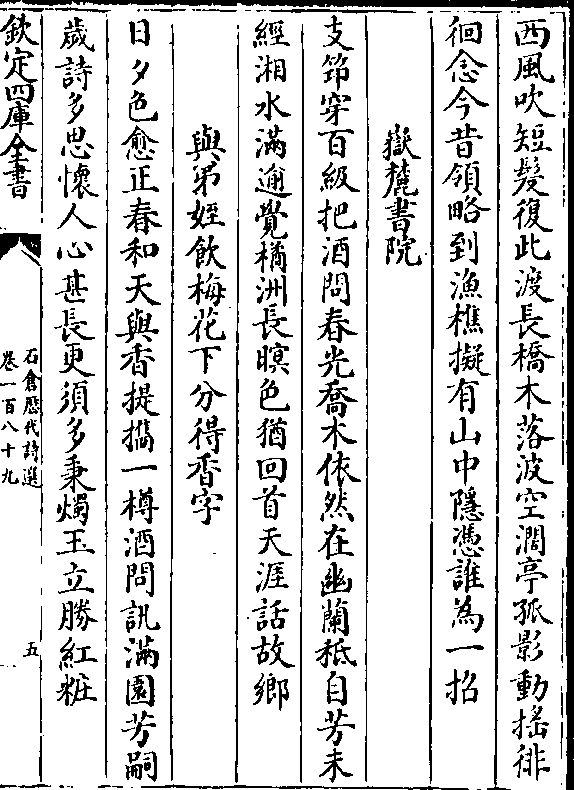 西風吹短髮復此渡長橋木落波空濶亭孤影動揺徘
徊念今昔領略到漁樵擬有山中隱憑誰為一招
嶽麓書院
支笻穿百級把酒問春光喬木依然在幽蘭秪自芳未
經湘水滿遍覺橘洲長暝色猶回首天涯話故鄉
與弟姪飲梅花下分得香字
日夕色愈正春和天與香提攜一樽酒問訊滿園芳嗣
歲詩多思懷人心甚長更須多秉燭玉立勝紅粧
欽定四庫全書
石倉歴代詩選
卷一百八十九
五